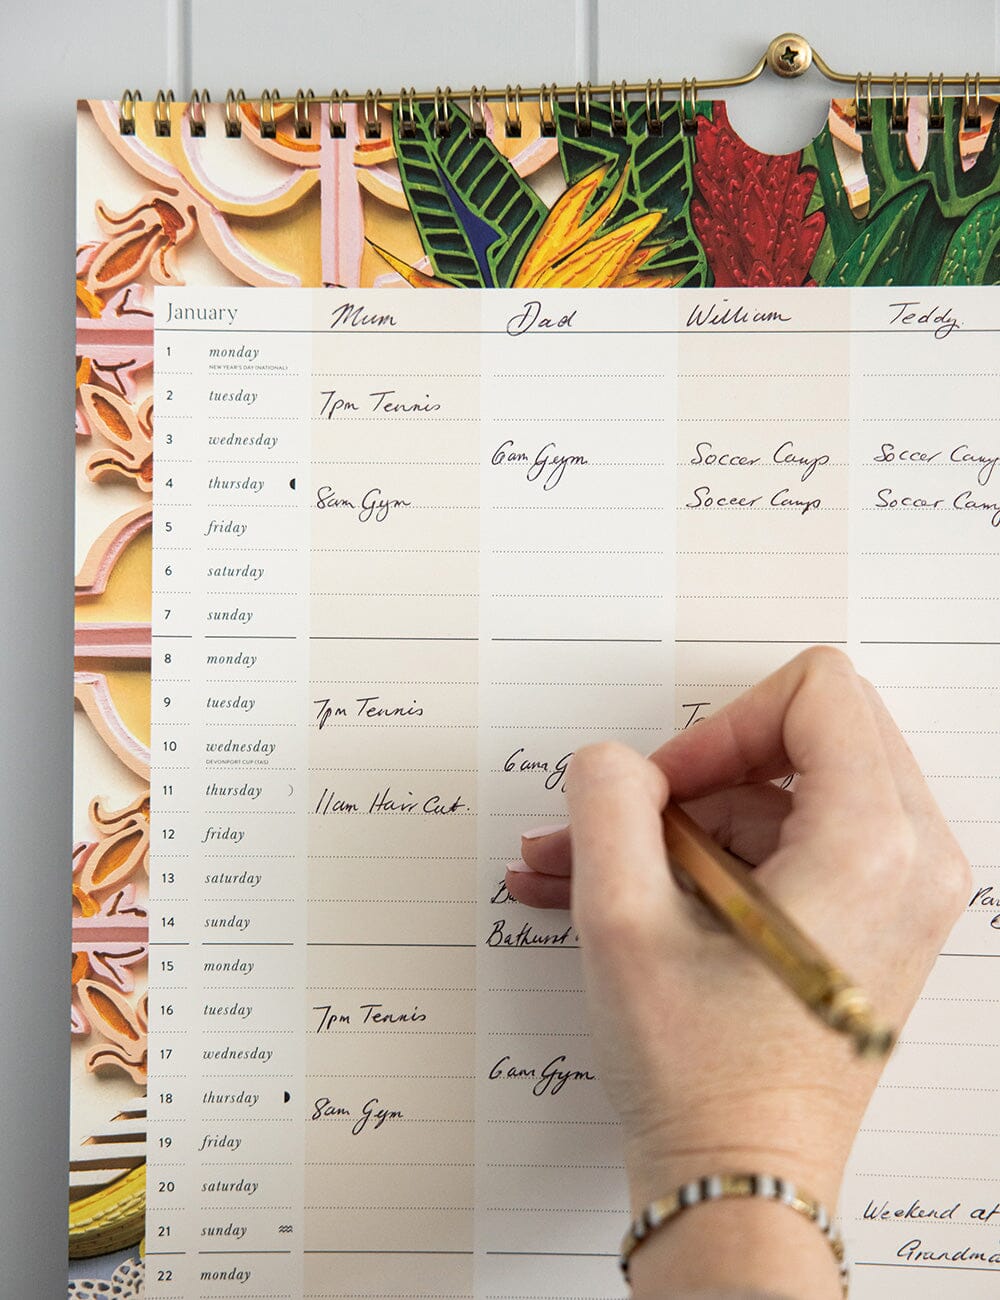 January Mum Dad William Teddy.
1 monday
NEW YEAR'S DAY (NATIONAL)
2 tuesday 7pm Tennis
3 wednesday 6am Gym Soccer Camp Soccer Camp
4 thursday 8am Gym Soccer Camp Soccer Cam
5 friday
6 saturday
7 sunday
8 monday
9 tuesday 7pm Tennis
10 wednesday 6am G
DEVONPORT CUP (TAS)
11 thursday 11am Hair Cut.
12 friday
13 saturday
14 sunday Bathurst
15 monday
16 tuesday 7pm Tennis
17 wednesday 6am Gym
18 thursday 8am Gym
19 friday
20 saturday Weekend at
21 sunday Grandma
22 monday